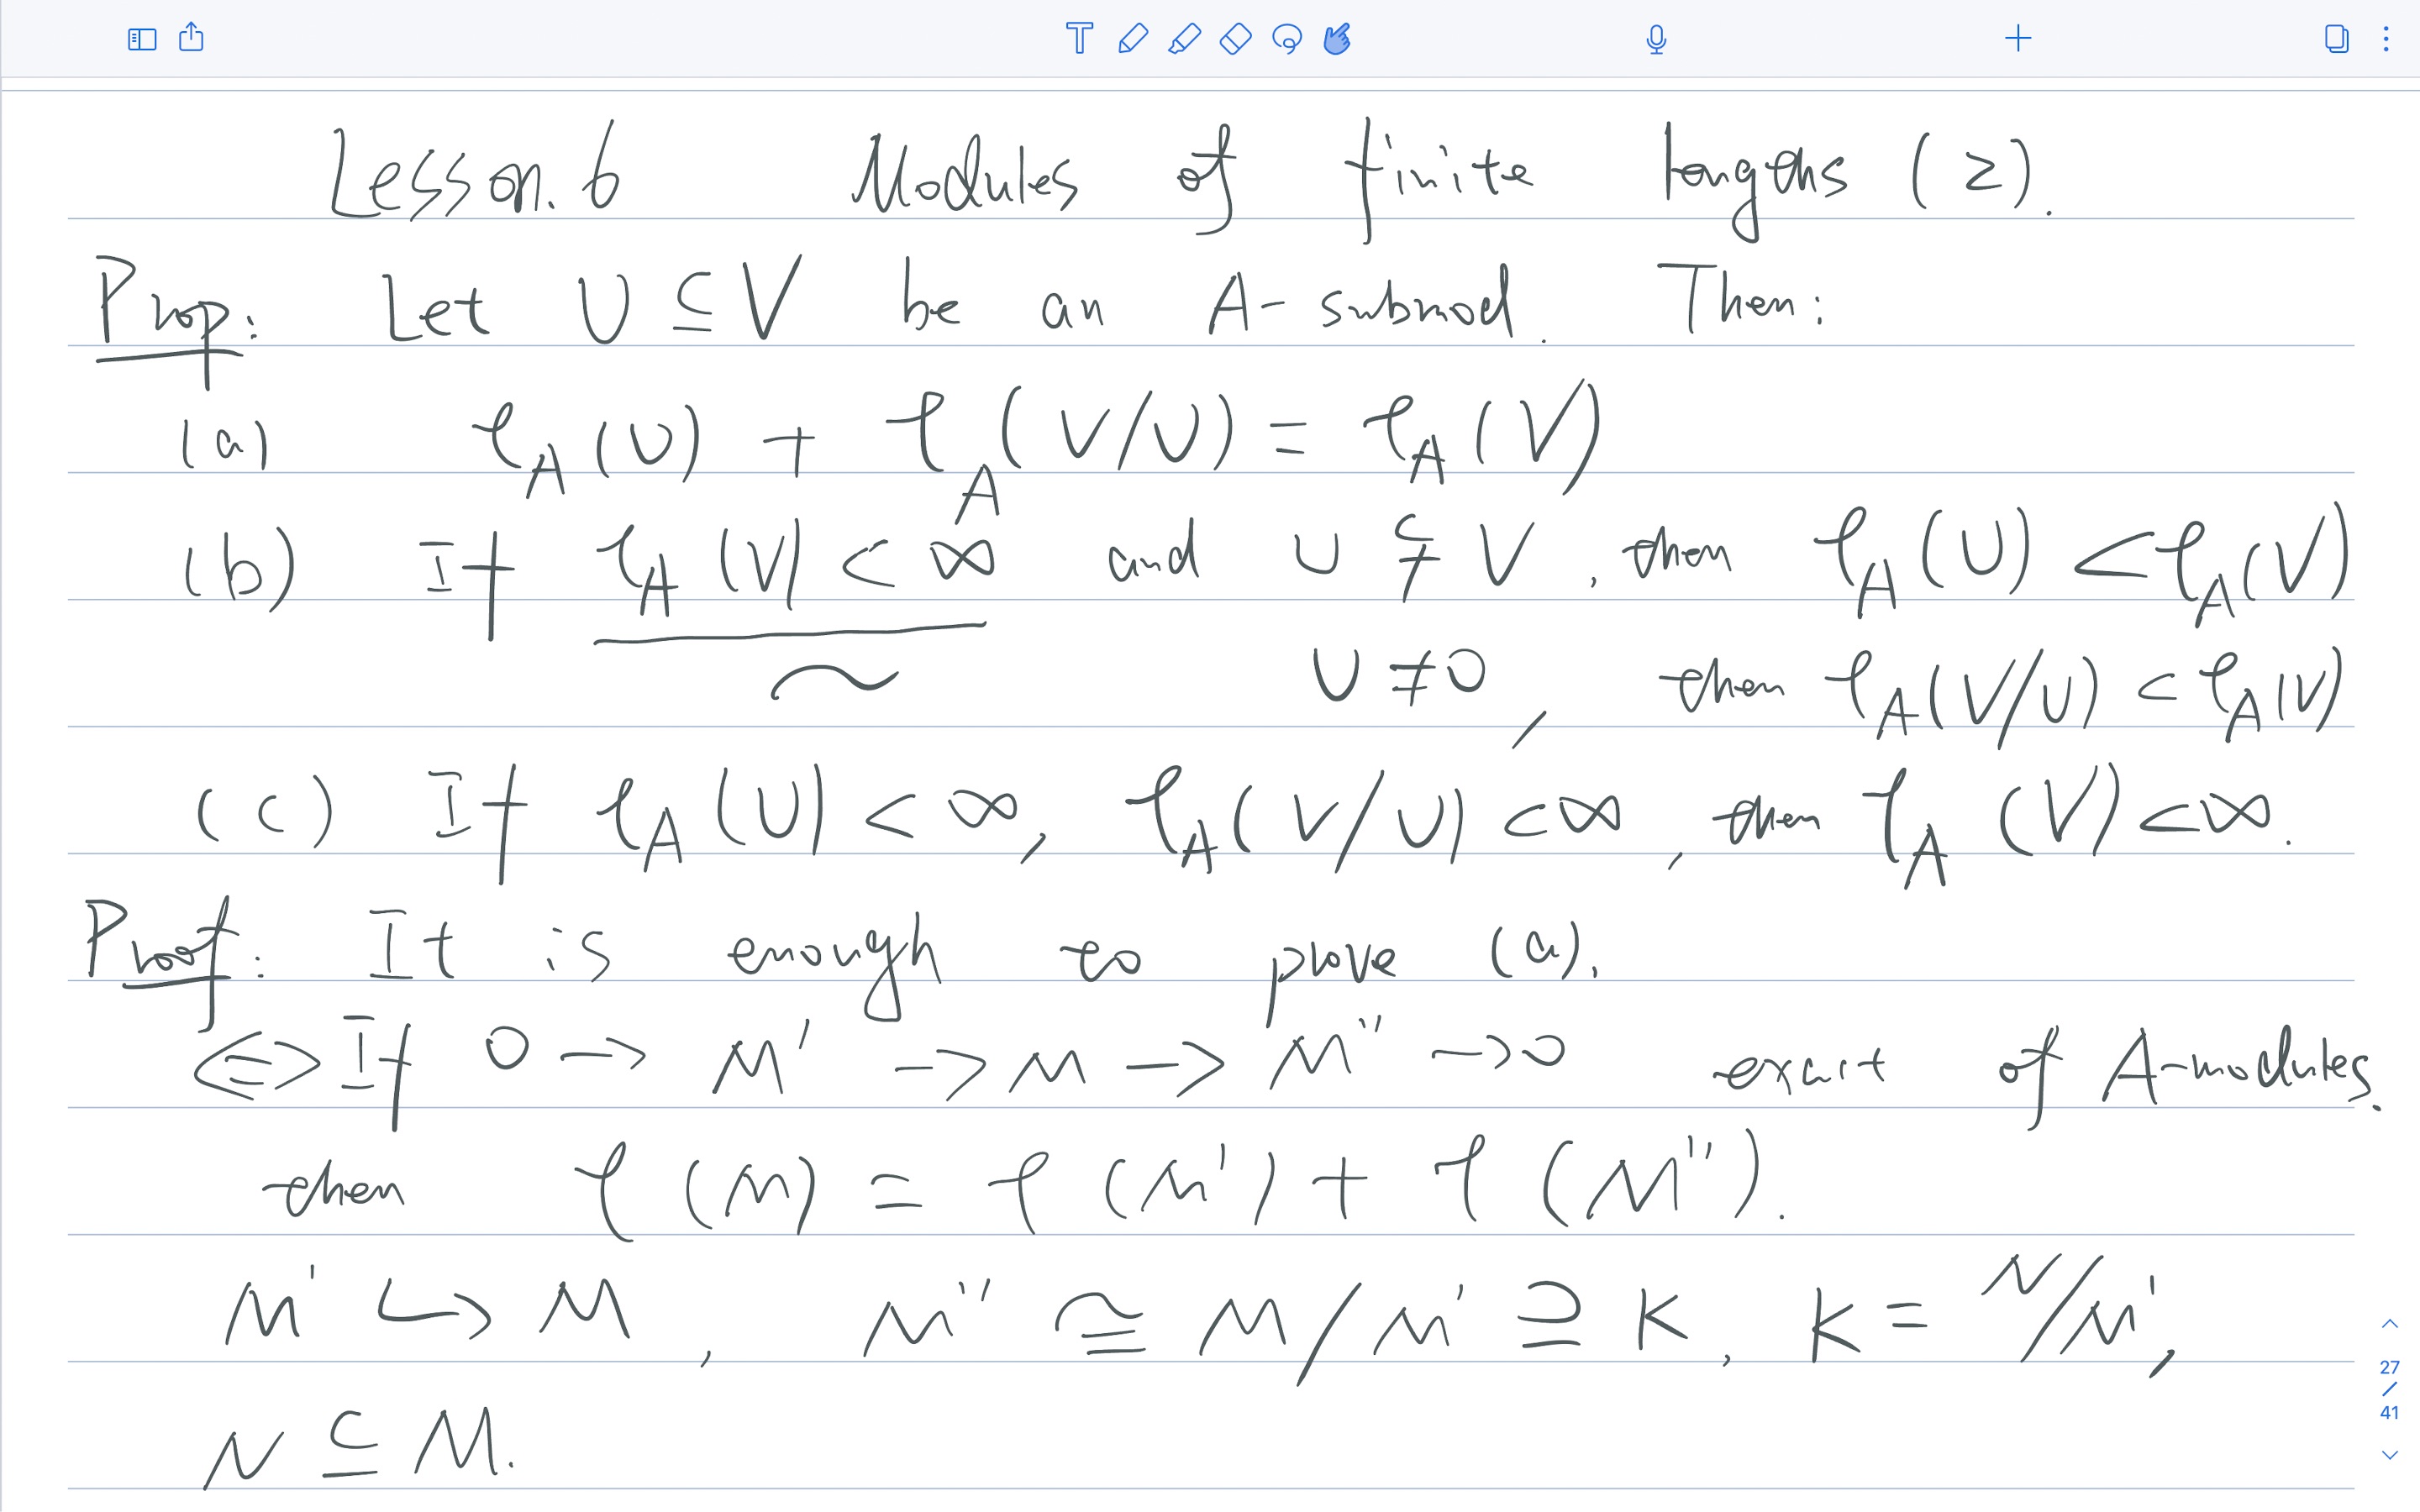 Lesson. 6 Modules of finite lengths (2).
Prop: Let U ⊆ V be an A-submod. Then:
(a) ℓ_A(U) + ℓ_A(V/U) = ℓ_A(V)
(b) If ℓ_A(V) < ∞ and U ⊊ V, then ℓ_A(U) < ℓ_A(V)
U ≠ 0, then ℓ_A(V/U) < ℓ_A(V)
(c) If ℓ_A(U) < ∞, ℓ_A(V/U) < ∞, then ℓ_A(V) < ∞.
Proof: It is enough to prove (a).
⇔ If 0 → M' → M → M'' → 0 exact of A-modules.
then ℓ(M) = ℓ(M') + ℓ(M'').
M' ↪ M, M'' ≅ M/M' ⊇ K, K = N/M',
N ⊆ M.
27
/
41